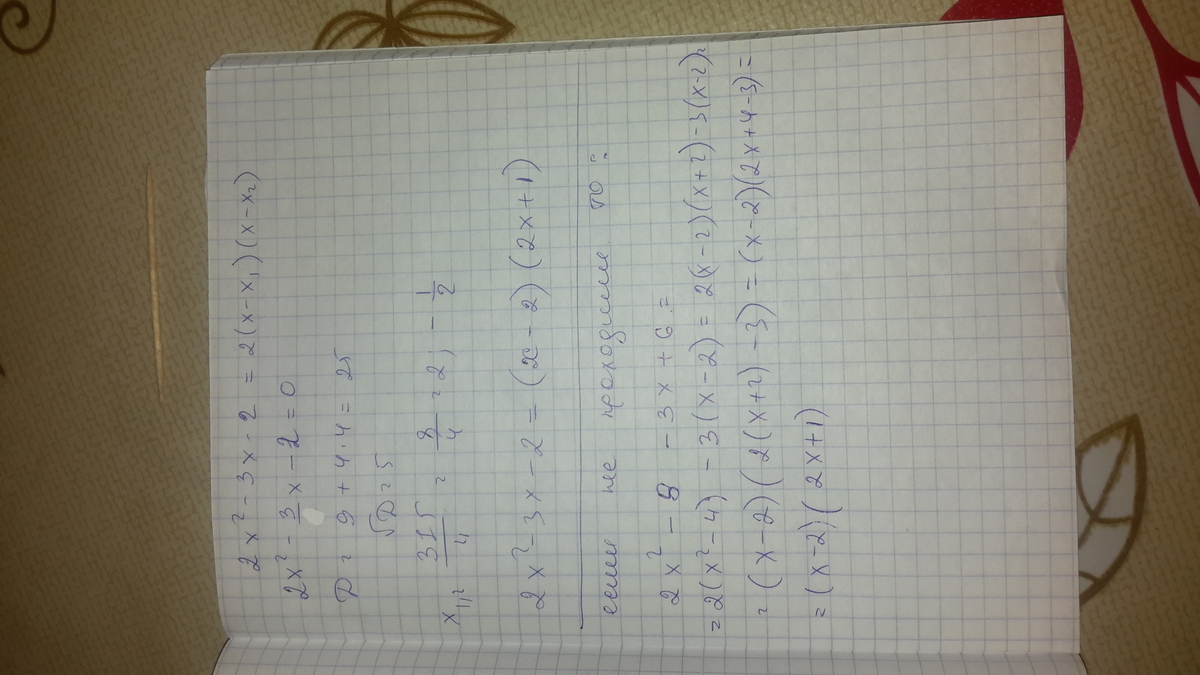 2x² - 3x - 2 = 2(x - x₁)(x - x₂)
2x² - 3x - 2 = 0
D = 9 + 4·4 = 25
√D = 5
x₁,₂ = (3±5)/4 = 8/4 = 2; -1/2
2x² - 3x - 2 = (x - 2)(2x + 1)
если не проходили то:
2x² - 8 - 3x + 6 =
= 2(x² - 4) - 3(x - 2) = 2(x - 2)(x + 2) - 3(x - 2) =
= (x - 2)(2(x + 2) - 3) = (x - 2)(2x + 4 - 3) =
= (x - 2)(2x + 1)